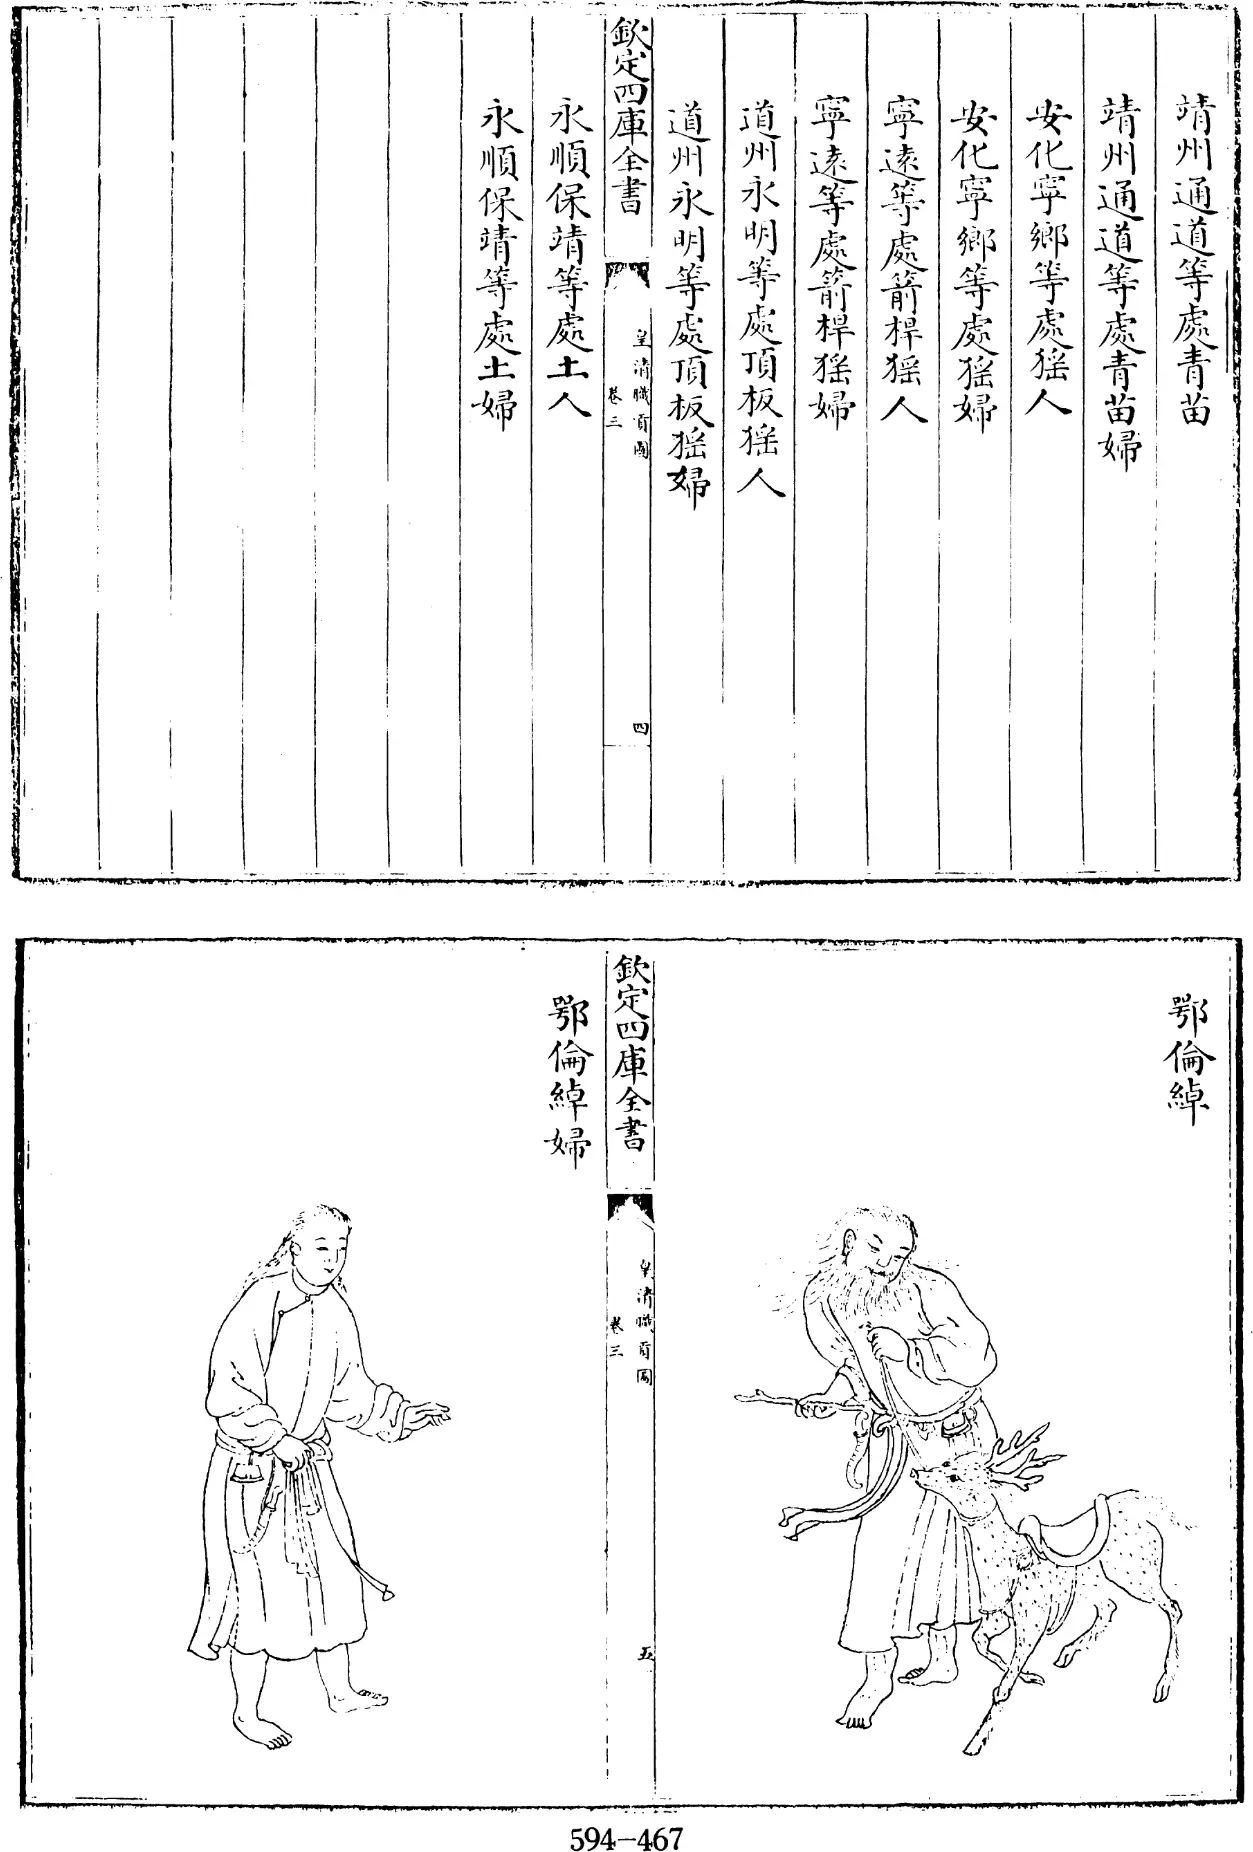 靖州通道等處青苗
靖州通道等處青苗婦
安化寧鄉等處猺人
安化寧鄉等處猺婦
寧遠等處箭桿猺人
寧遠等處箭桿猺婦
道州永明等處頂板猺人
道州永明等處頂板猺婦
欽定四庫全書
皇清職貢圖
卷三
四
永順保靖等處土人
永順保靖等處土婦
鄂倫綽
欽定四庫全書
皇清職貢圖
卷三
五
鄂倫綽婦
594-467